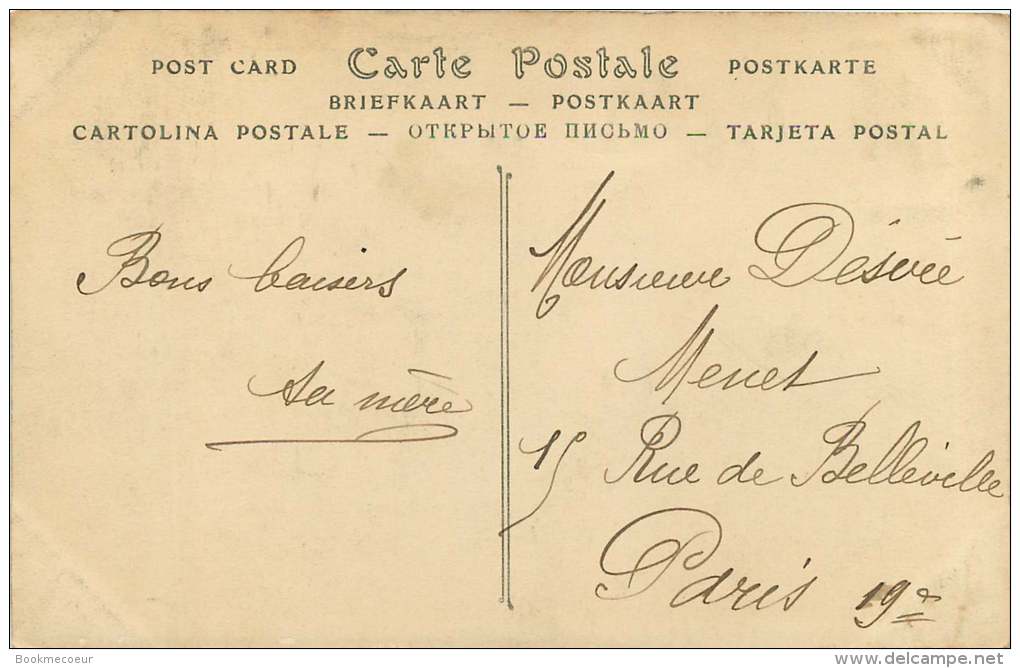 POST CARD Carte Postale POSTKARTE
BRIEFKAART — POSTKAART
CARTOLINA POSTALE — ОТКРЫТОЕ ПИСЬМО — TARJETA POSTAL
Bons baisers
ta mère
Monsieur Désirée
Menet
15 Rue de Belleville
Paris 19e
Bookmecoeur
delcampe.net